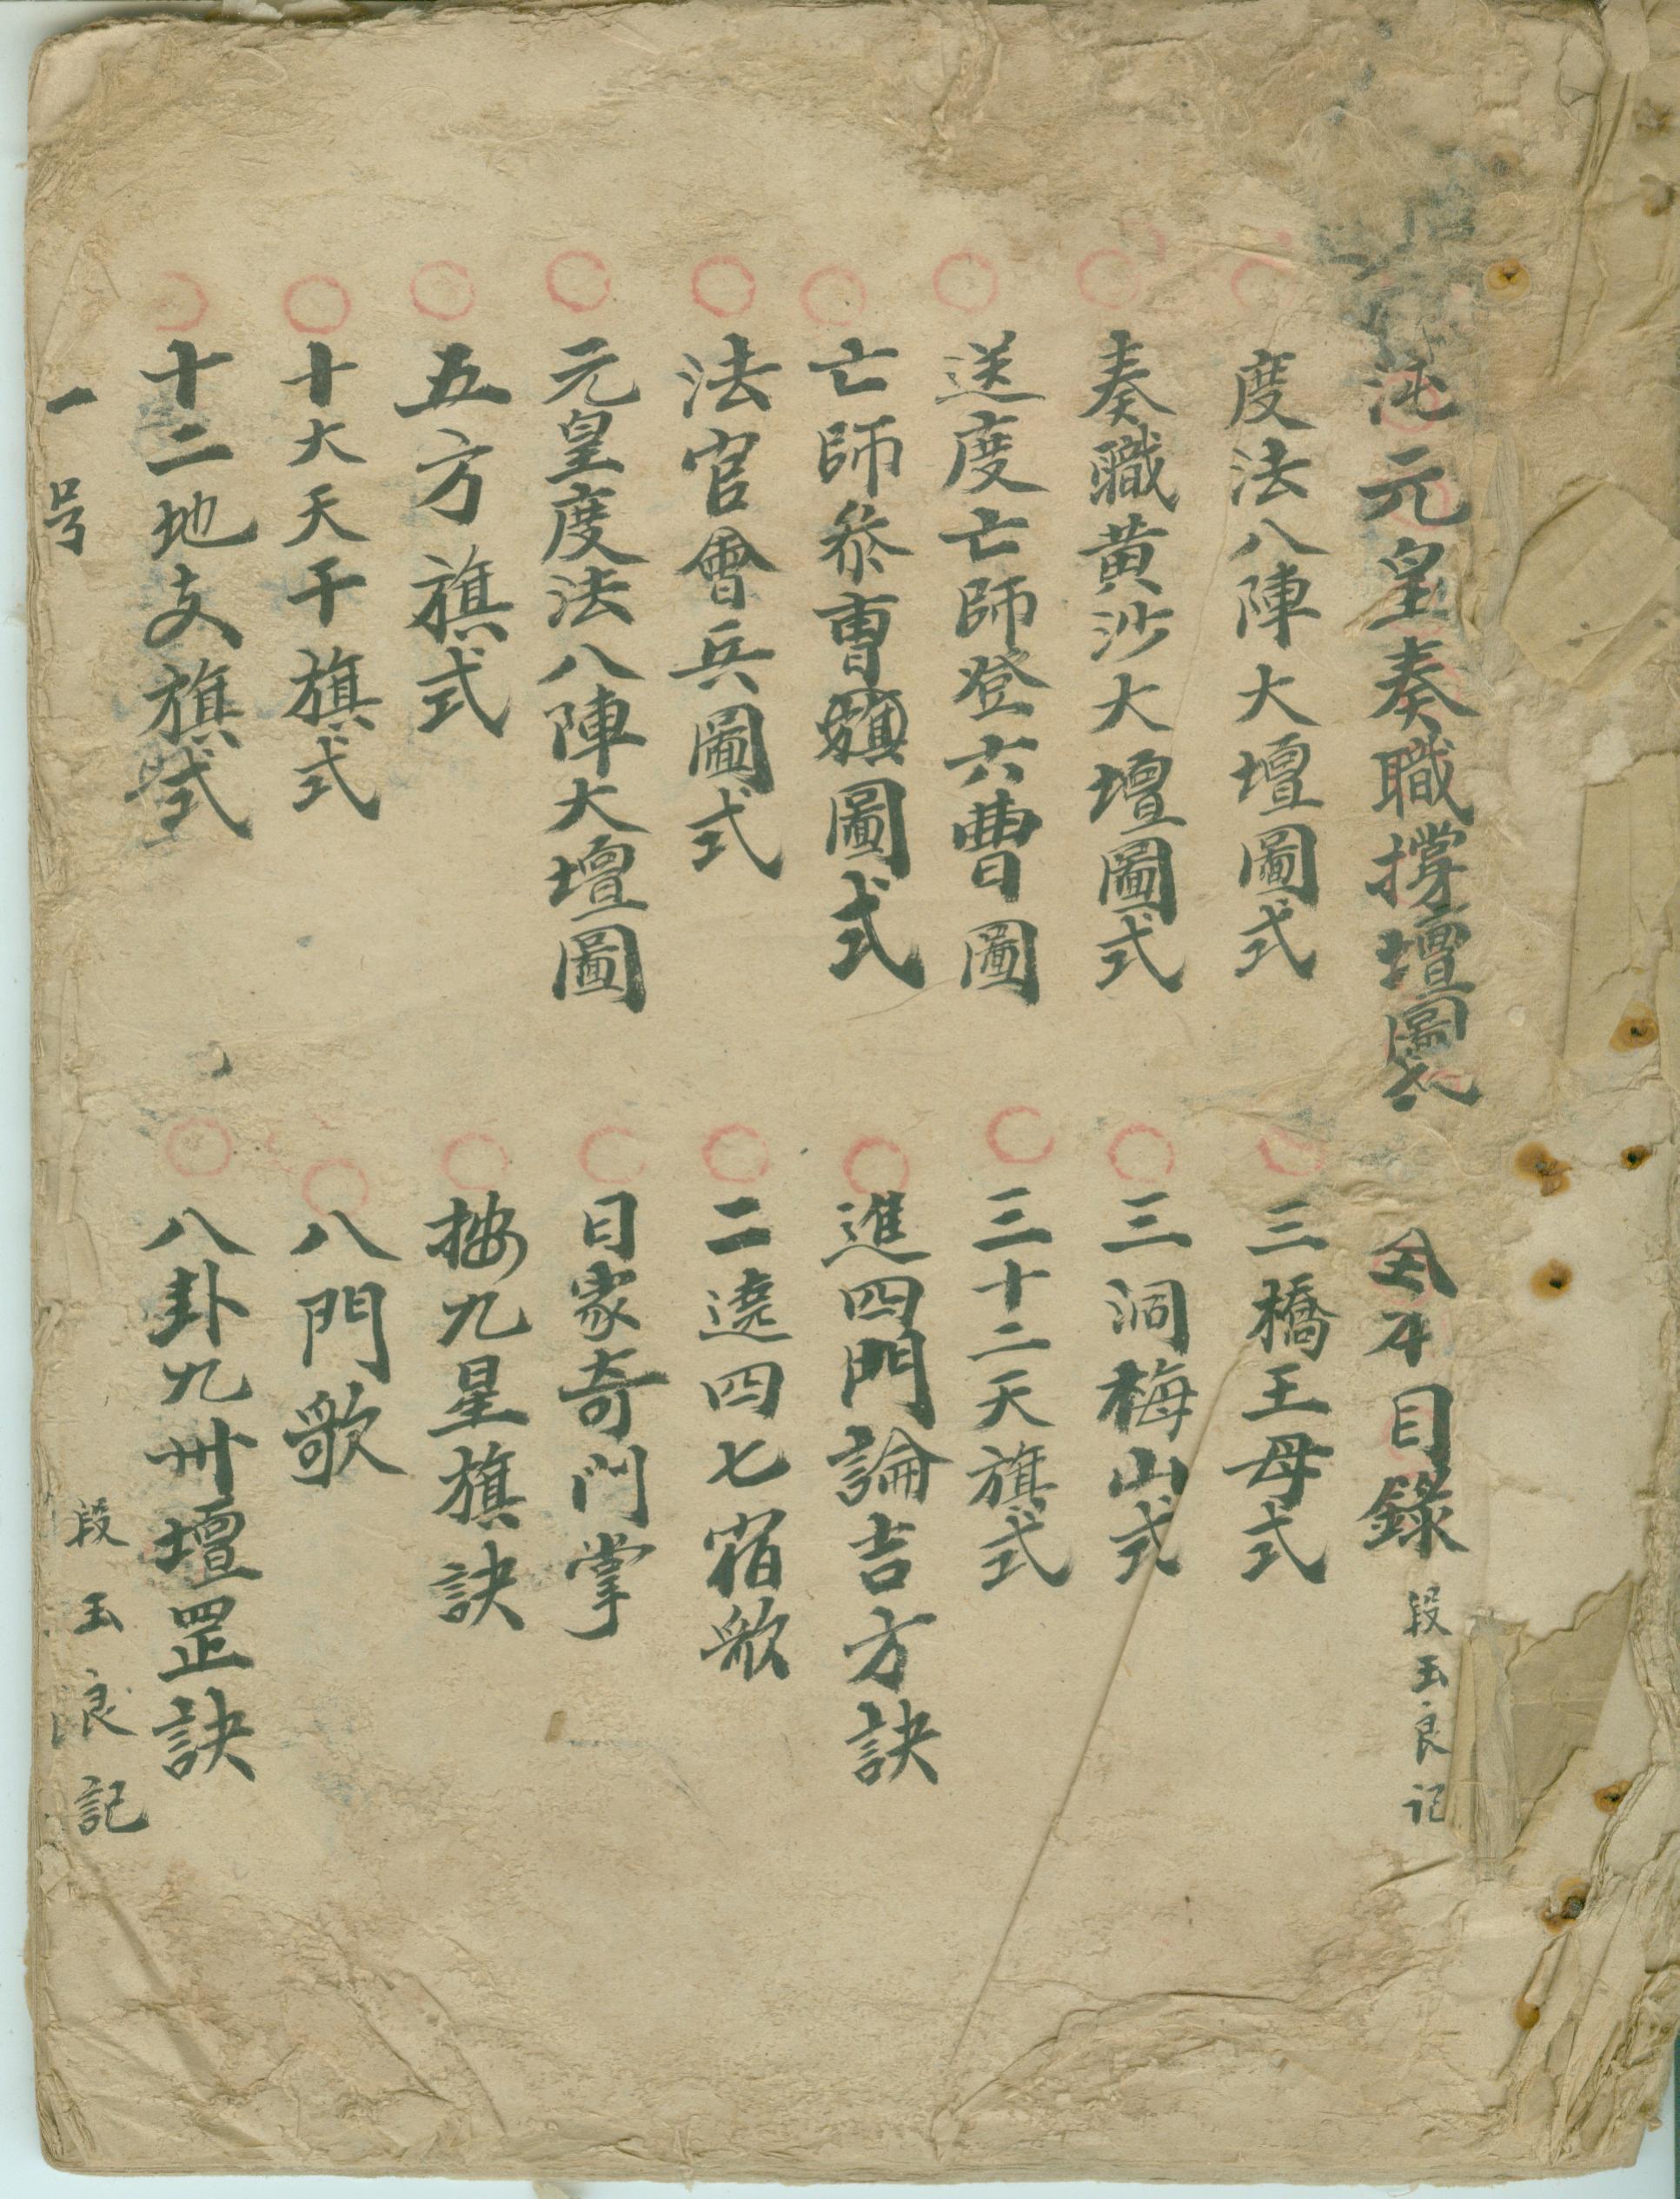 元皇奏職撐壇圖式 全本目錄 段玉良記
度法八陣大壇圖式
三橋王母式
奏職黃沙大壇圖式
三洞梅山式
送度亡師登六曹圖
三十二天旗式
亡師叅曹旗圖式
進四門論吉方訣
法官會兵圖式
二遶四七宿歌
元皇度法八陣大壇圖
日家奇門掌
五方旗式
按九星旗訣
十大天干旗式
八門歌
十二地支旗式
八卦九州壇罡訣
一号
段玉良記